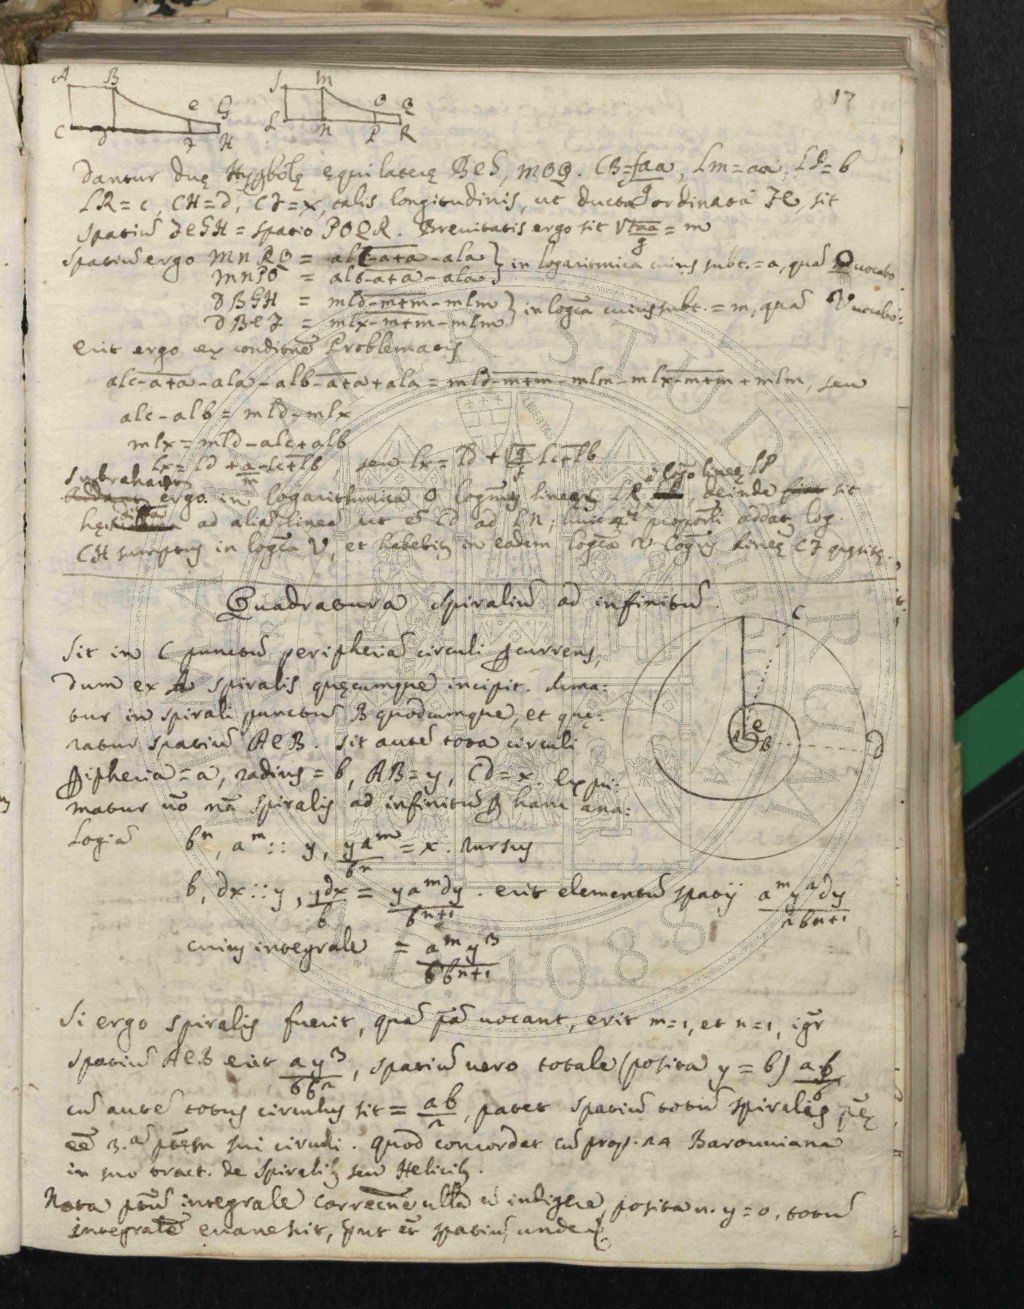 17
A B e G C D F H
I M O Q L N P R
Dantur duę Hyperbolę equilaterę BeG, MOQ. CB = faa/g, LM = aa, LP = b
LR = c, CH = d, CF = x, talis longitudinis, ut ducta ordinata Fe, sit
spatiũ FeGH = spatio POQR. Brevitatis ergo sit √faa/g = m
spatiũ ergo MNRQ = alc - a+a - ala } in logaritmica cuius subt. = a, quã O vocabo
MNPO = alb - a+a - ala
DBGH = mld - m+m - mlm } in logca cuius subt. = m, quã V vocabo
DBeF = mlx - m+m - mlm
erit ergo ex conditione Problematis
alc - a+a - ala - alb - a+a + ala = mld - m+m - mlm - mlx - m+m + mlm, seu
alc - alb = mld - mlx
mlx = mld - alc + alb
lx = ld + a/m - lc + lb seu lx = ld + √g/f - lc + lb
Subtrahatur ergo in logarithmica O logmus lineę LR à logmo lineę LP, deinde sit
hęc ad aliã lineã ut ad huic proportli addatur log
CH sumptus in logca V, et habebitur in eadem logca V logmus lineę CF quęsitę.
Quadratura spiraliũ ad infinitũ
C e A B D
Sit in C punctũ peripheriã circuli percurrens,
dum ex A spiralis quęcumque incipit. Suma-
tur in spirali punctũ B quodcumque, et quę-
ratur spatiũ AeB. Sit autẽ tota circuli
peripheria = a, radius = b, AB = y, CD = x. Expri-
matur spiralis ad infinitũ per hanc ana-
logiã b^n, a^m :: y, ya^m/b^n = x. rursus
b, dx :: y, ydx/b = ya^m dy/b^n+1. erit elementũ spatij a^m y^2 dy/2b^n+1
cuius integrale = a^m y^3/6b^n+1
Si ergo spiralis fuerit, quã pã vocant, erit m = 1, et n = 1, igr
spatiũ AeB erit ay^3/6b^2, spatiũ vero totale (posita y = b) ab/6
cũ autẽ totus circulus sit = ab/2, patet spatiũ totũ spirales pę
eẽ 3.ã ptem sui circuli. quod concordat cũ prop. 24 Barouuiana
in suo tract. de spiralib seu Helicib.
Nota integrale correctne ulla ñ indigere, posita n. y = 0, totũ
integrale evanescit, put et spatiũ